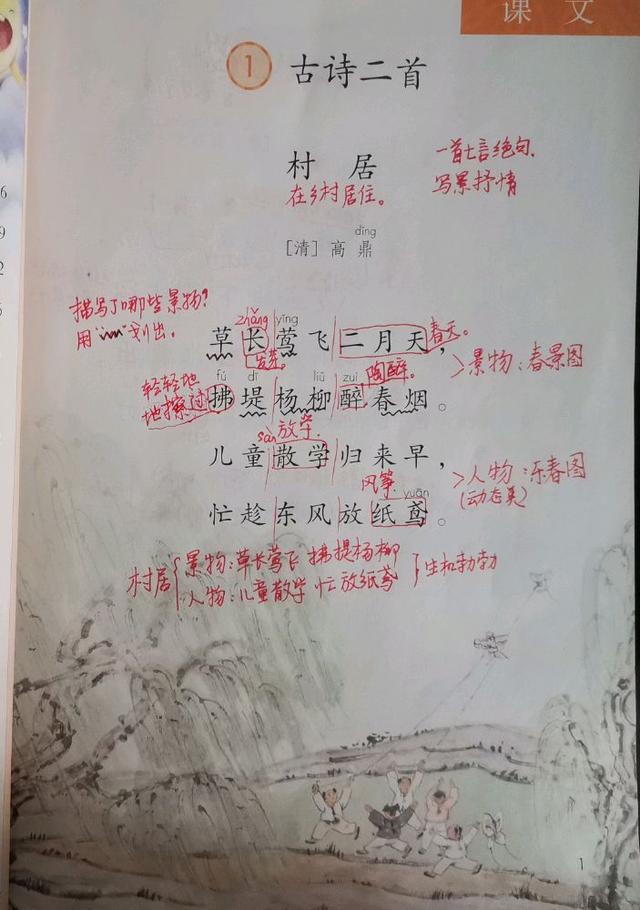 课文
1 古诗二首
村居
一首七言绝句.
写景抒情
在乡村居住。
dǐng
[清] 高鼎
描写了哪些景物?
用“﹏”划出。
zhǎng yīng
草长莺飞二月天,
春天。
发芽。
>景物:春景图
轻轻地
地擦过
fú dī liǔ zuì
陶醉。
拂堤杨柳醉春烟。
sàn 放学.
儿童散学归来早,
>人物:乐春图
(动态美)
风筝
yuān
忙趁东风放纸鸢。
村居
景物:草长莺飞 拂提杨柳
人物:儿童散学 忙放纸鸢
生机勃勃
6
9
2
1